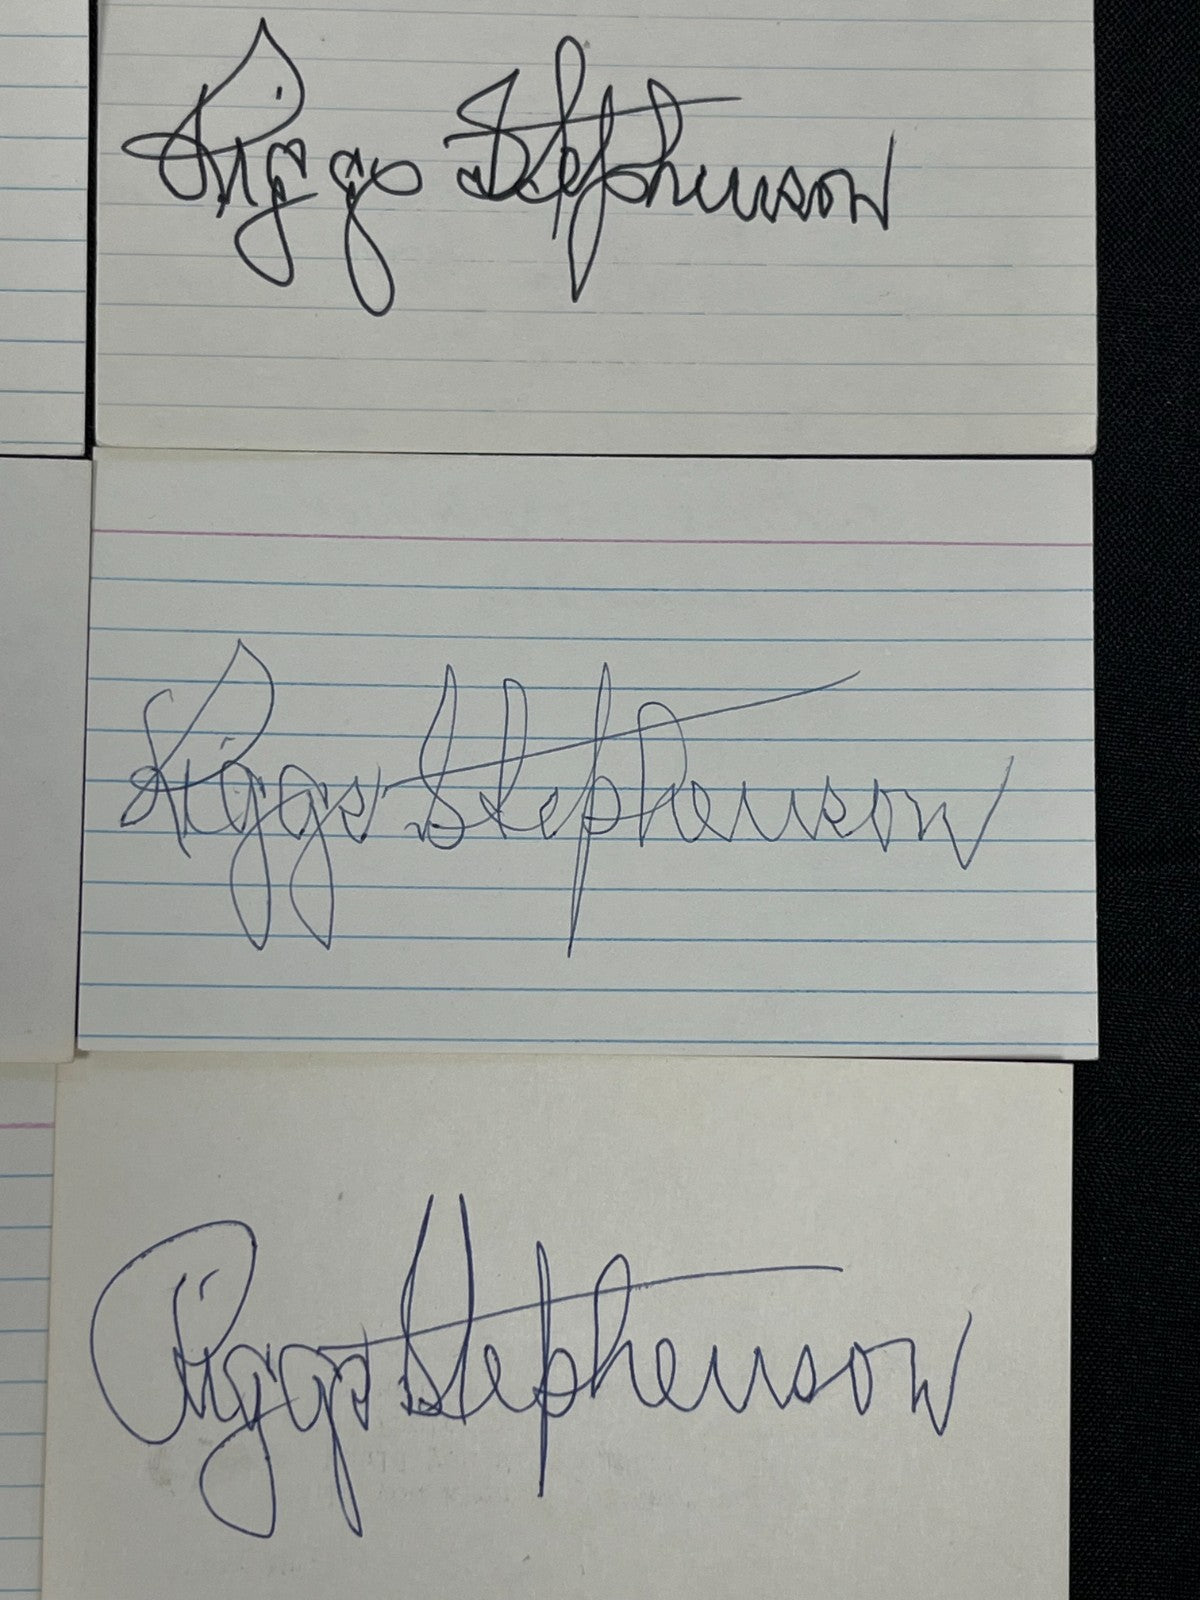 Riggs Stephenson
Riggs Stephenson
Riggs Stephenson